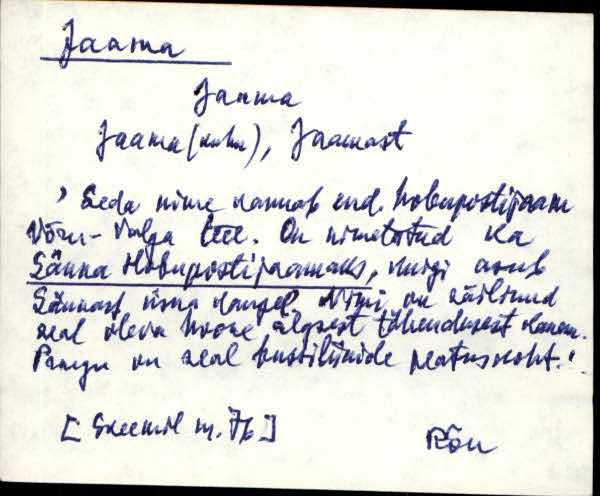 Jaama
Jaama
Jaama (kuhu), Jaamast
' Seda nime kannab end. hobupostijaam
Võru-Valga teel. On nimetatud ka
Sänna Hobupostijaamaks, kuigi asub
Sännast üsna kaugel. Nimi on säilinud
seal oleva hoone algsest tähendusest
Praegu on seal bussiliinide peatuskoht.'
[Skeemil nr. 76]
Rõu